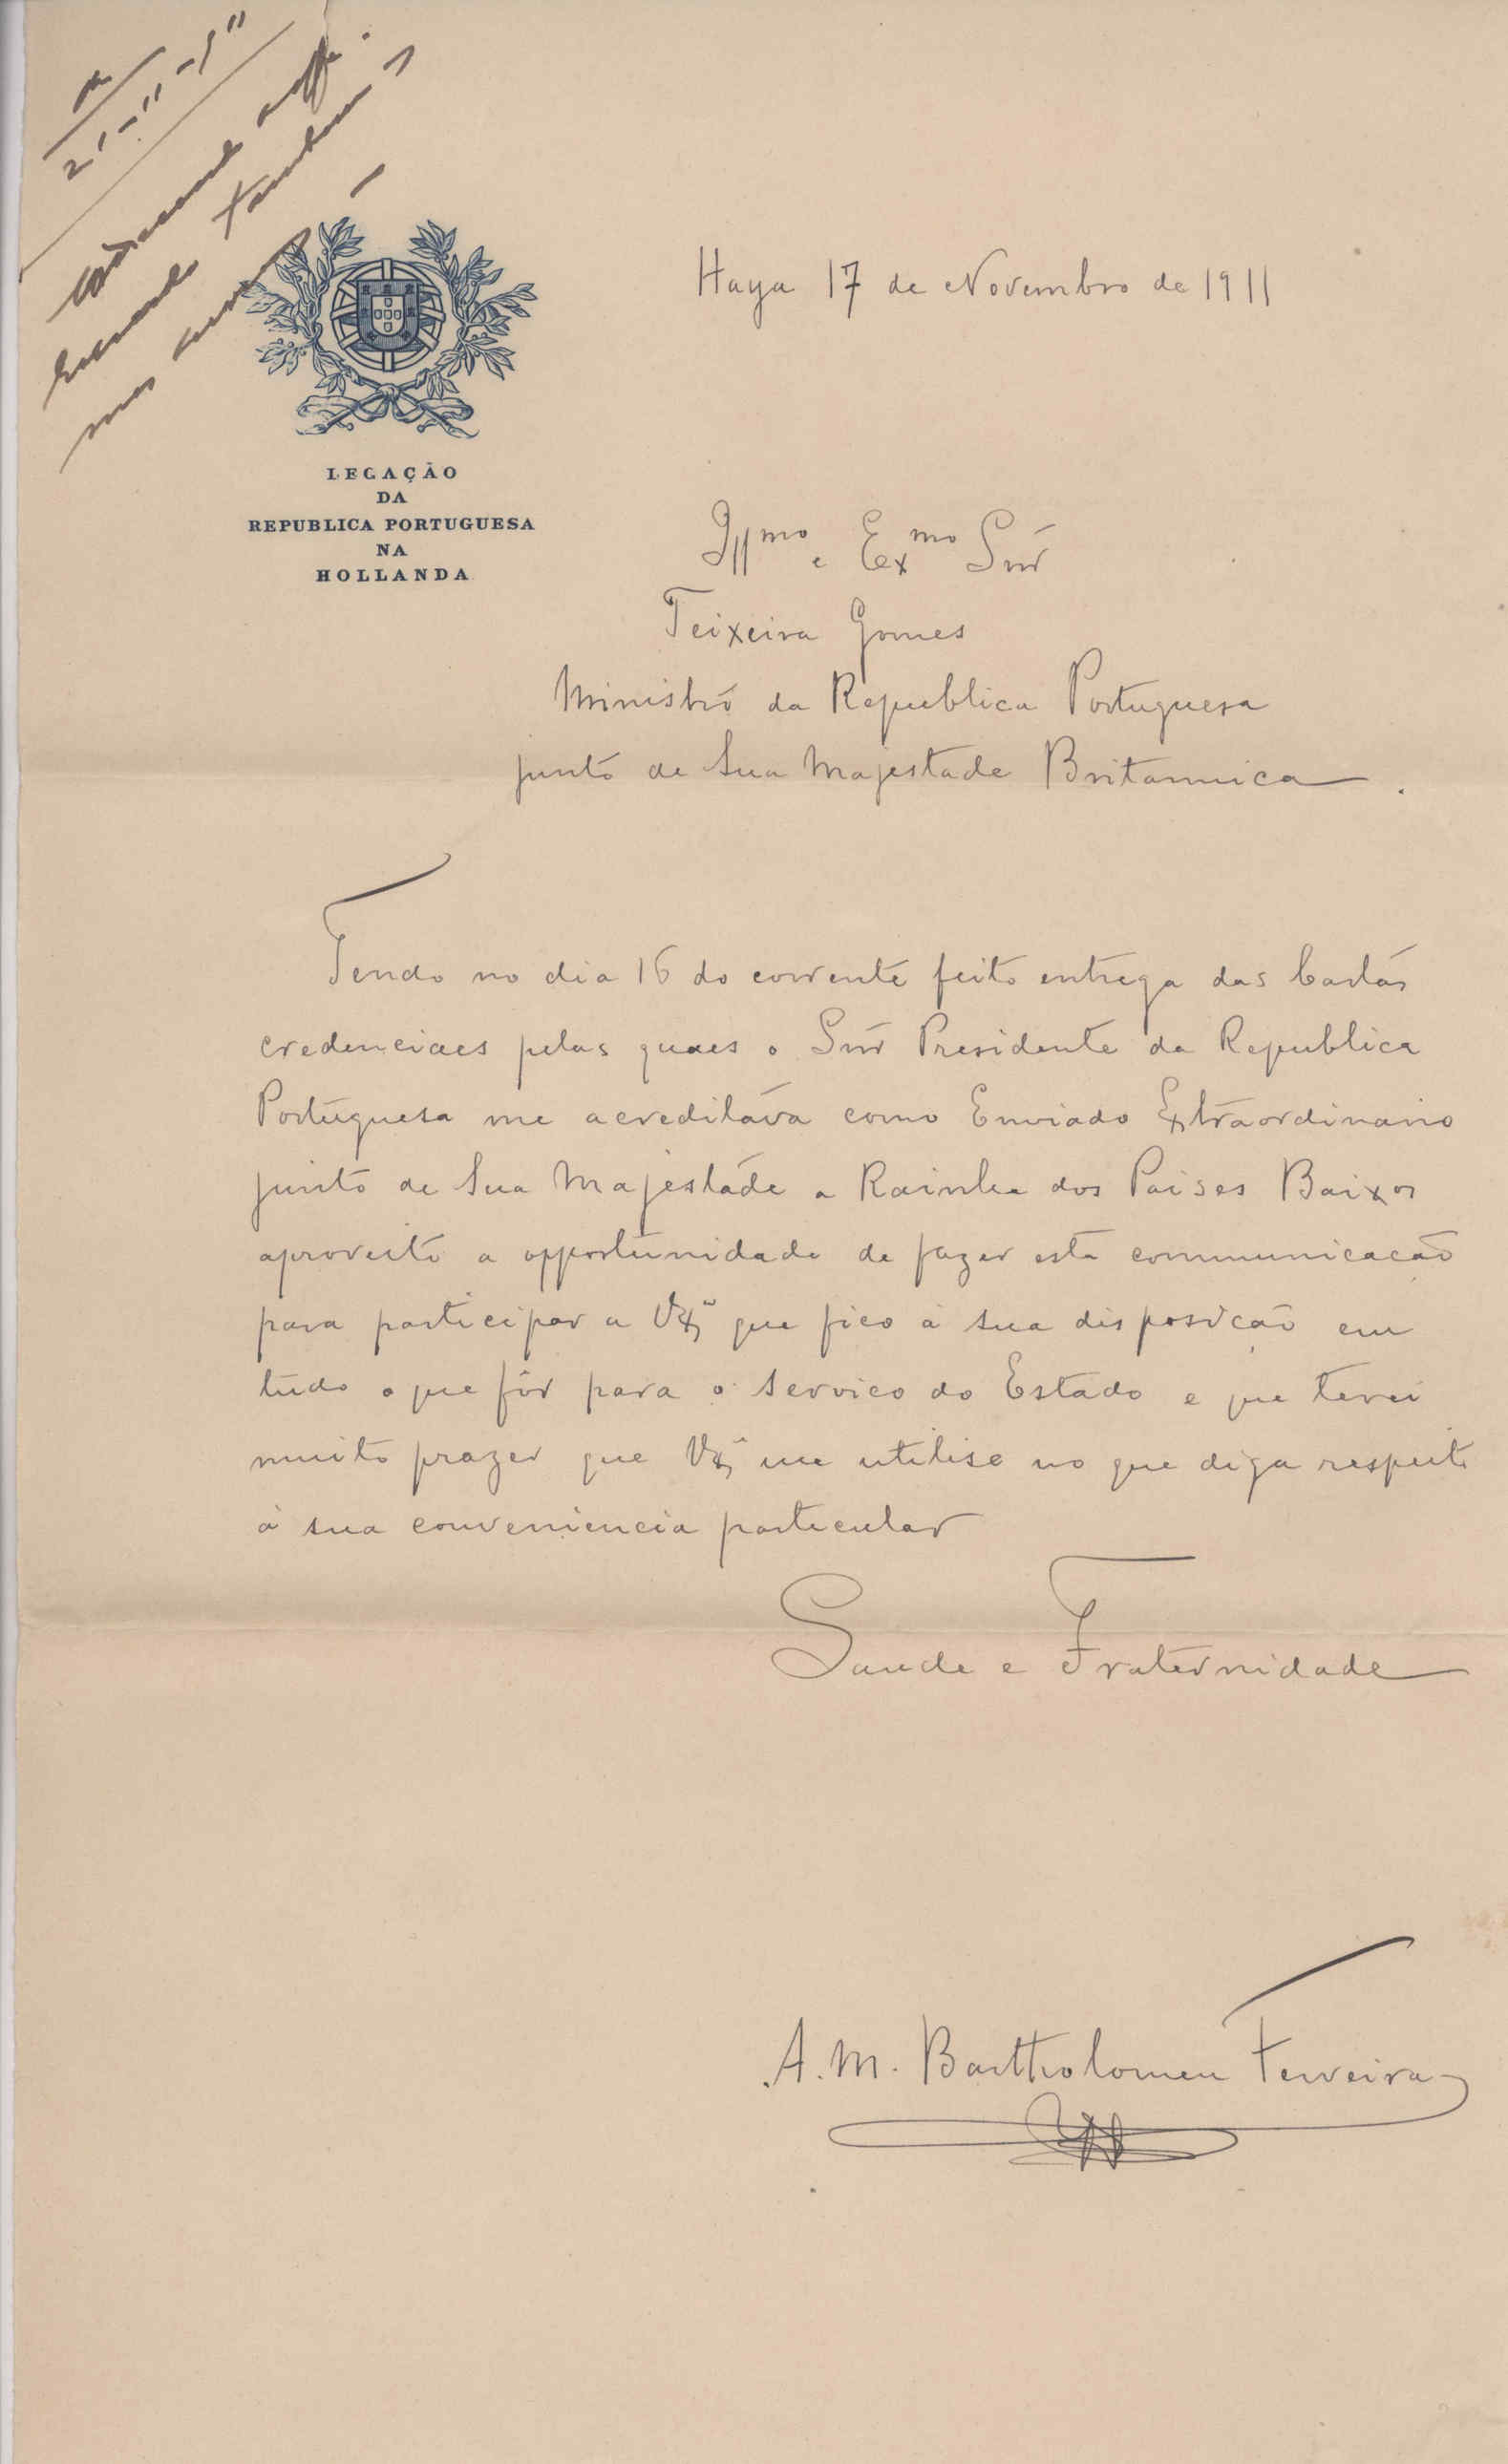 21-11-911
LEGAÇÃO
DA
REPUBLICA PORTUGUESA
NA
HOLLANDA
Haya 17 de Novembro de 1911
Illmo e Exmo Snr
Teixeira Gomes
Ministro da Republica Portuguesa
junto de Sua Majestade Britannica.
Tendo no dia 16 do corrente feito entrega das Cartas
credenciaes pelas quaes o Snr Presidente da Republica
Portuguesa me acreditava como Enviado Extraordinario
junto de Sua Majestade a Rainha dos Paises Baixos
aproveito a opportunidade de fazer esta communicação
para participar a VExª que fico à sua disposição em
tudo o que fôr para o serviço do Estado e que terei
muito prazer que VExª me utilise no que diga respeito
à sua conveniencia particular
Saude e Fraternidade
A. M. Bartholomeu Ferreira